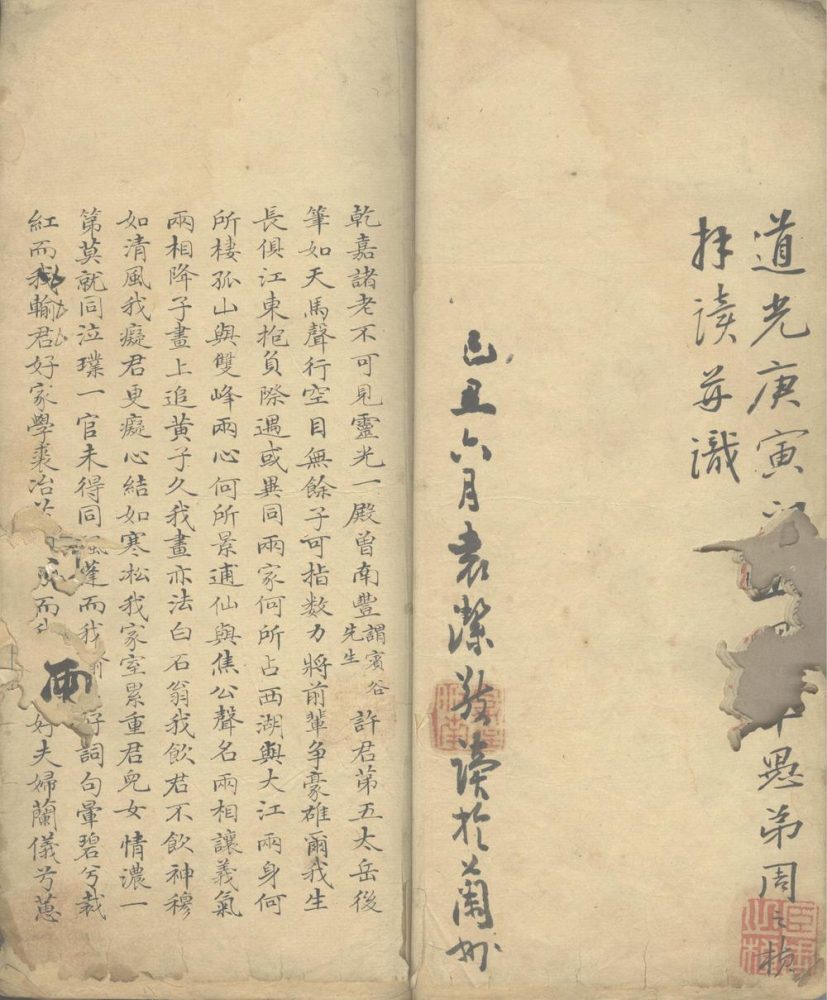 道光庚寅
愚弟周之楨
拜讀并識
己丑六月袁潔敬讀於蘭州
乾嘉諸老不可見靈光一殿曾南豐謂賓谷先生許君第五太岳後
筆如天馬聲行空目無餘子可指数力將前輩爭豪雄爾我生
長俱江東抱負際遇或異同兩家何所占西湖與大江兩身何
所棲孤山與雙峰兩心何所景逋仙與焦公聲名兩相讓義氣
兩相降子畫上追黃子久我畫亦法白石翁我飲君不飲神穆
如清風我癡君更癡心結如寒松我家室累重君兒女情濃一
第莫就同泣璞一官未得同飄蓬而我
好詞句暈碧兮裁
紅而我輸君好家學裘冶
而
雨
好夫婦蘭儀兮蕙